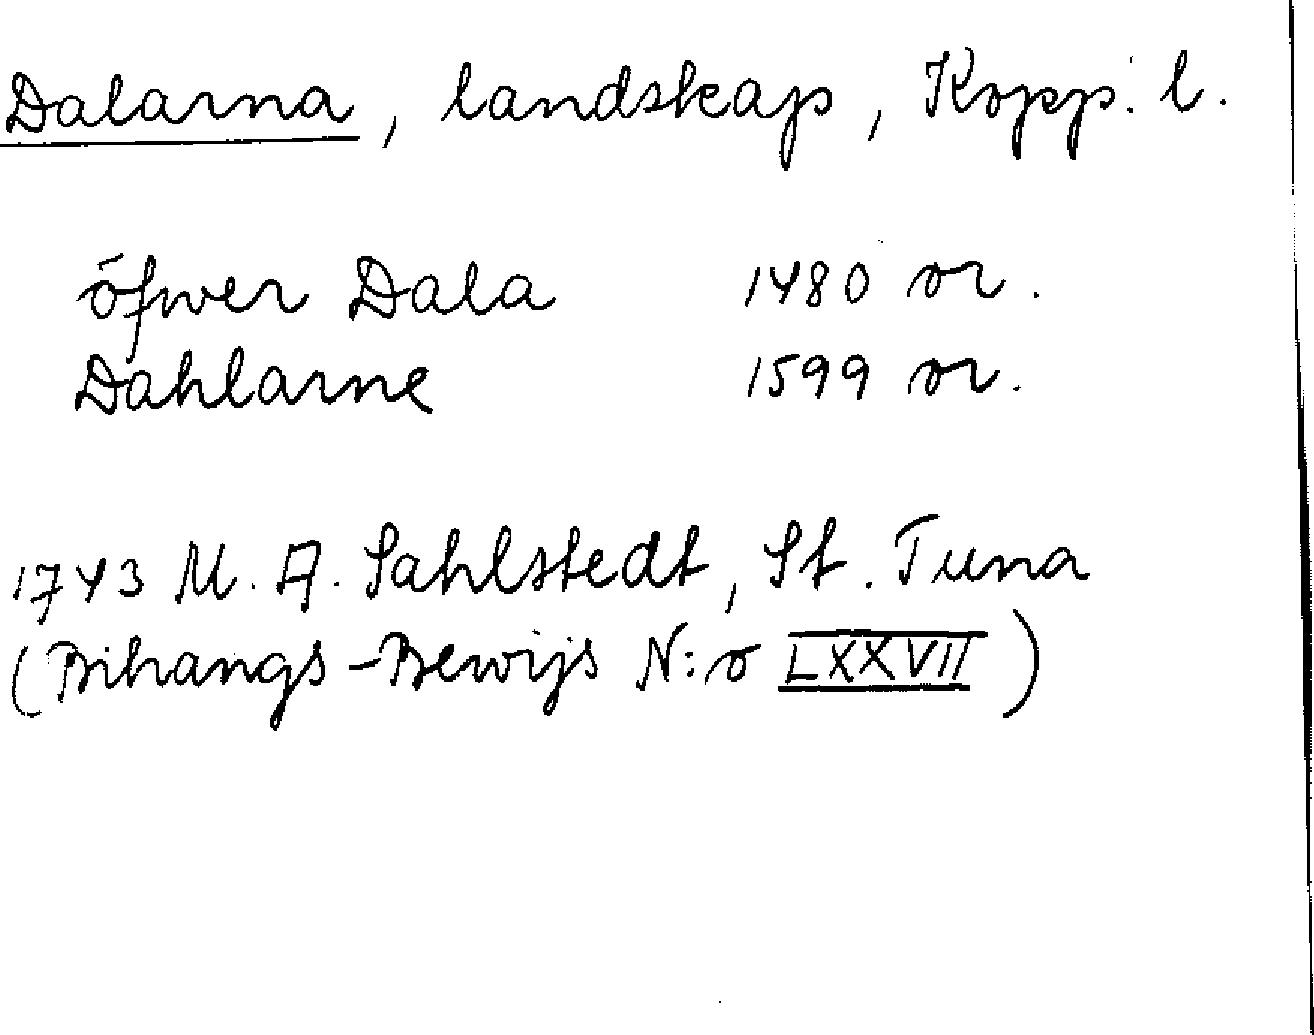 Dalarna, landskap, Kopp. l.
öfwer Dala 1480 or.
Dahlarne 1599 or.
1743 M. A. Sahlstedt, St. Tuna
(Bihangs-Bewijs N:o LXXVII)